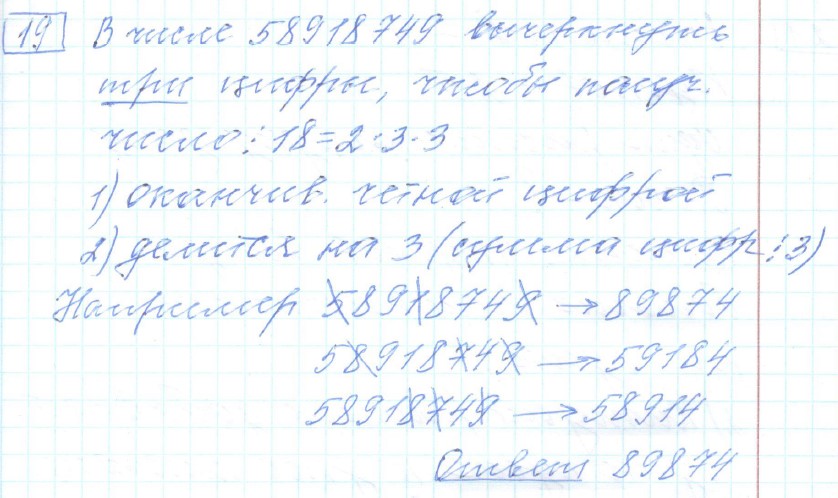 19 В числе 58918749 вычеркнуть
три цифры, чтобы получ.
число ⋮ 18=2·3·3
1) оканчив. четной цифрой
2) делится на 3 (сумма цифр ⋮ 3)
Например 58918749 → 89874
58918749 → 59184
58918749 → 58914
Ответ 89874